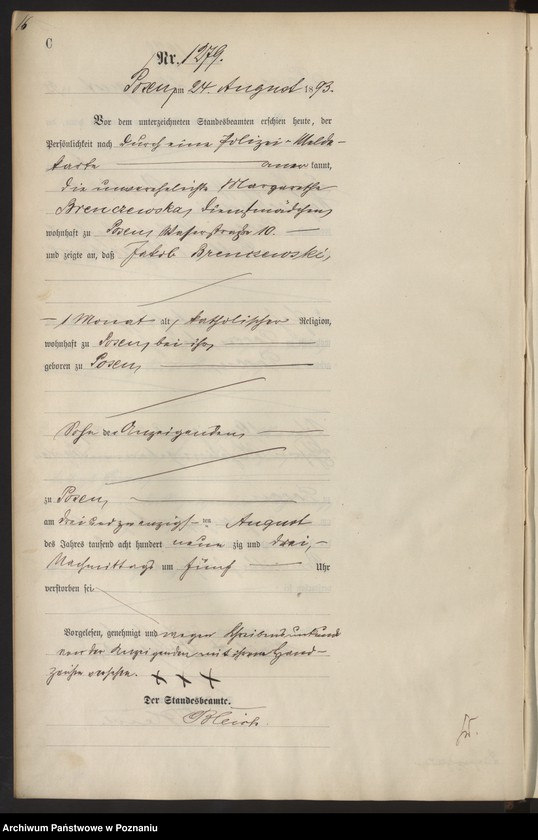 16
C
Nr. 1279.
Posen, am 24. August 1893.
Vor dem unterzeichneten Standesbeamten erschien heute, der
Persönlichkeit nach durch eine Polizei-Melde-
karte anerkannt,
die unverehelichte Margarethe
Brenczewska, Dienstmädchen,
wohnhaft zu Posen, Wasserstraße 10.
und zeigte an, daß Jakob Brenczewski,
1 Monat alt, katholischer Religion,
wohnhaft zu Posen, bei ihr,
geboren zu Posen,
Sohn der Anzeigenden,
zu Posen,
am dreiundzwanzigsten August
des Jahres tausend acht hundert neunzig und drei,
Nachmittags um fünf Uhr
verstorben sei.
Vorgelesen, genehmigt und wegen Schreibensunkunde
von der Anzeigenden mit ihrem Hand-
zeichen versehen. +++
Der Standesbeamte.
Archiwum Państwowe w Poznaniu